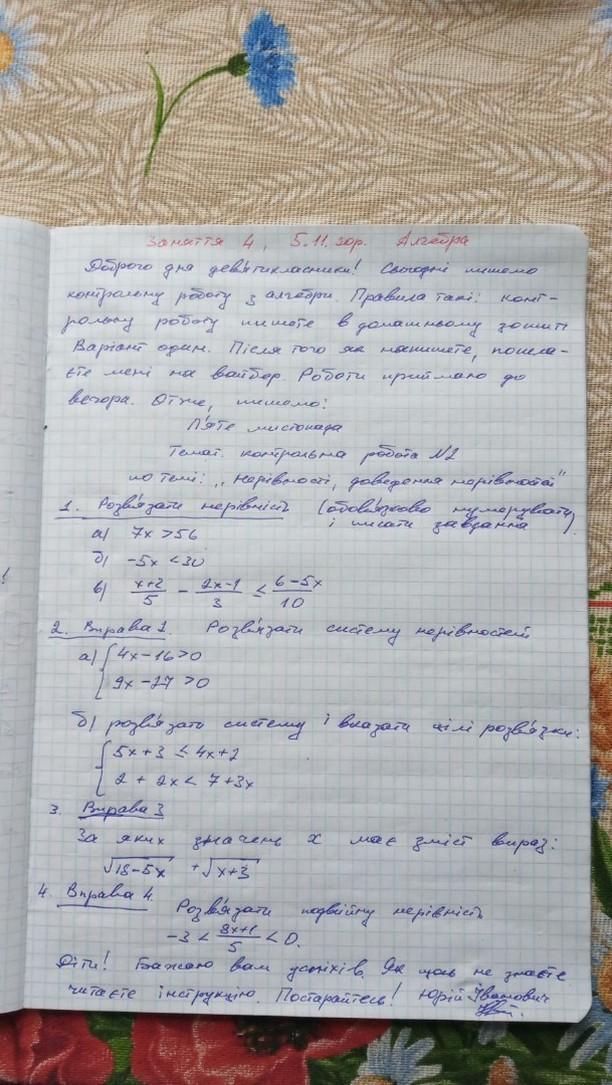 Заняття 4, 5.11. Алгебра
Доброго дня дев'ятикласники! Сьогодні пишемо
контрольну роботу з алгебри. Правила такі: конт-
рольну роботу пишете в домашньому зошиті
Варіант один. Після того як напишете, посила-
єте мені на вайбер. Роботи приймаю до
вечора. Отже, пишемо:
П'яте листопада
Темат. контрольна робота №2
по темі: „Нерівності, доведення нерівностей"
1. Розв'язати нерівність (обов'язково нумерувати
і писати завдання)
а) 7x > 56
б) -5x < 30
в) (x+2)/5 - (2x-1)/3 < (6-5x)/10
2. Вправа 2. Розв'язати систему нерівностей
а) { 4x-16>0
9x-27 >0
б) розв'язати систему і вказати цілі розв'язки:
{ 5x+3 ≤ 4x+2
2 + 2x < 7+3x
3. Вправа 3
За яких значень x має зміст вираз:
√(18-5x) + √(x+3)
4. Вправа 4.
Розв'язати подвійну нерівність
-3 < (3x+1)/5 < 0.
Діти! Бажаю вам успіхів. Як щось не знаєте
читаєте інструкцію. Постарайтесь! Юрій Іванович